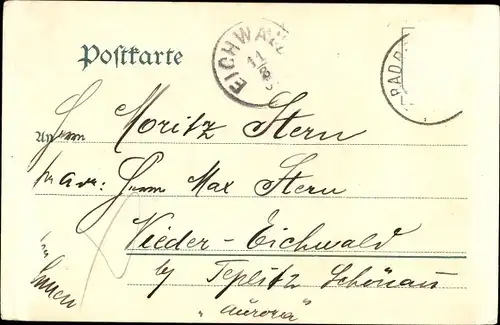 Postkarte
EICHWALD
11
8
An Herrn Moritz Stern
pr. Adr: Herrn Max Stern
Nieder-Eichwald
by Teplitz Schönau
"Aurora"